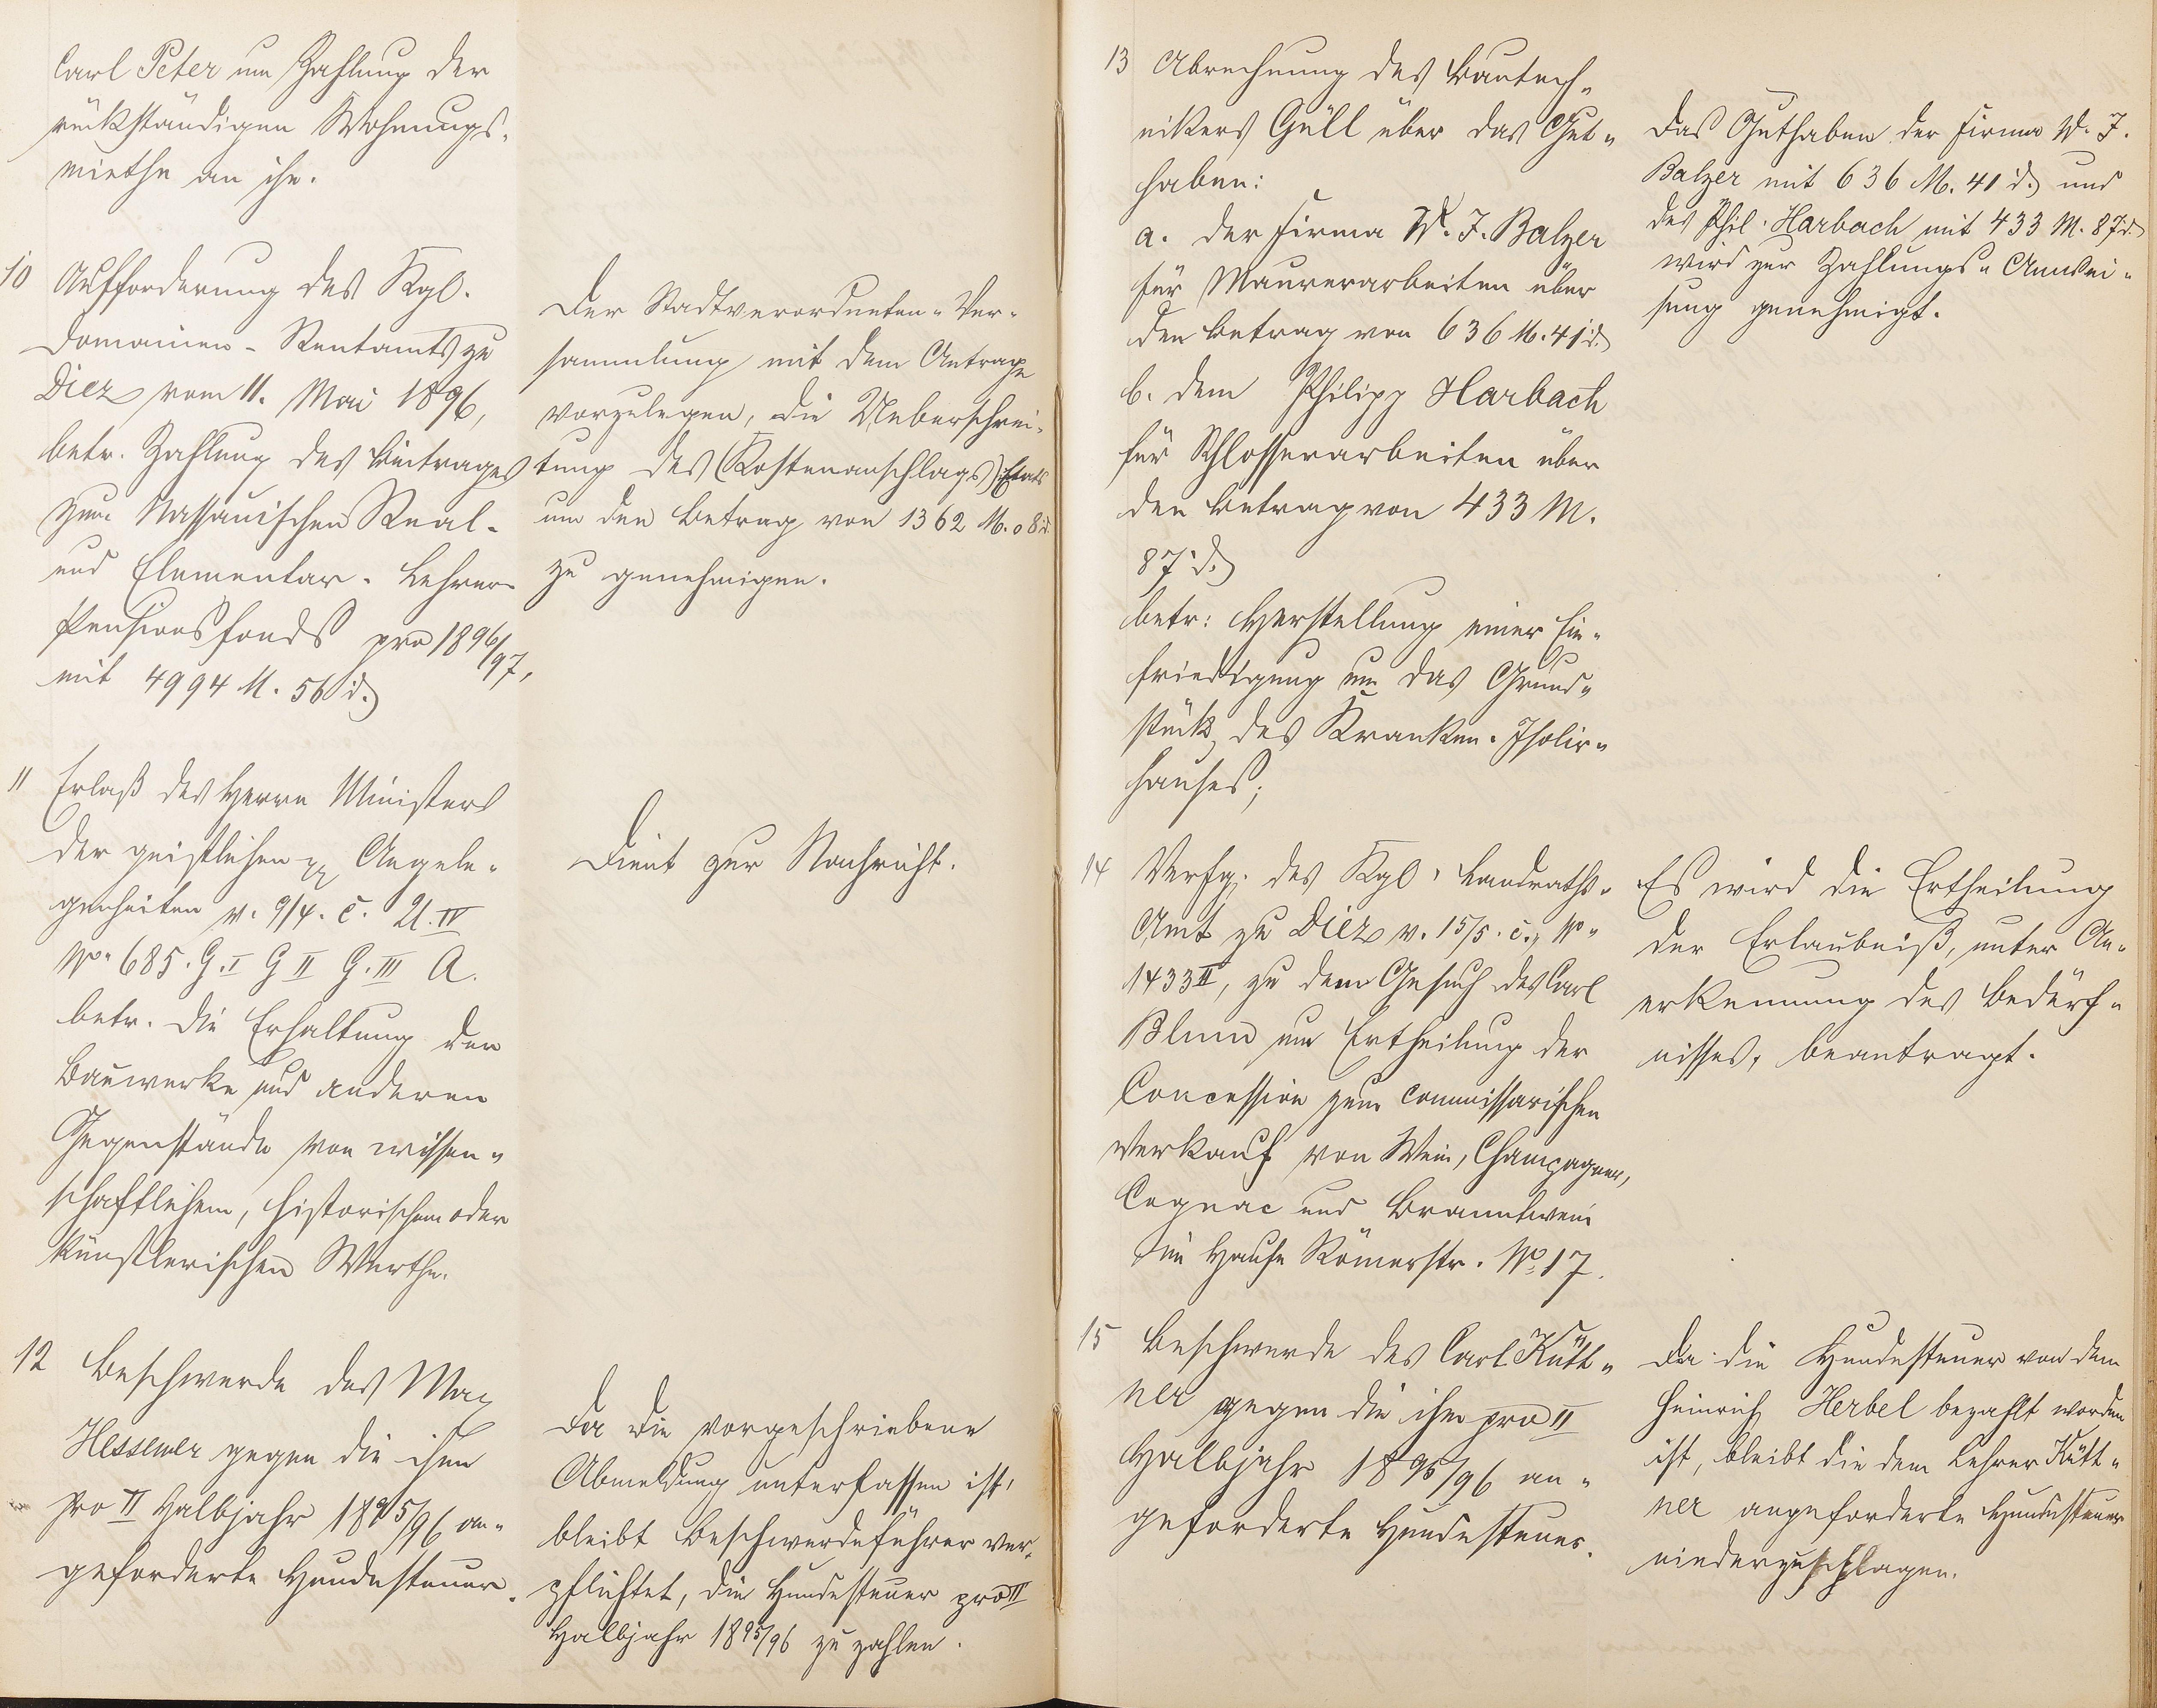 Carl Peter um Zahlung der
rückständigen Wohnungs-
miethe an ihn.
10 Aufforderung des Kgl.
Domainen-Rentamts zu
Diez vom 11. Mai 1896,
betr. Zahlung des Beitrages
zum Nassauischen Real-
und Elementar-Lehrer-
Pensionsfonds pro 1896/97,
mit 4994 M. 56 d.
Der Stadtverordneten-Ver-
sammlung mit dem Antrage
vorzulegen, die Ueberschrei-
tung des (Kostenanschlags) Etats
um den Betrag von 1362 M. 08 d.
zu genehmigen.
11 Erlaß des Herrn Ministers
der geistlichen pp Angele-
genheiten v. 9/4. c. U. IV
No. 685. G. I G II G. III A.
betr. die Erhaltung der
Bauwerke und anderen
Gegenstände von wissen-
schaftlichem, historischem oder
künstlerischen Werthe.
Dient zur Nachricht.
12 Beschwerde des Max
Hessemer gegen die ihm
pro II Halbjahr 1895/96 an-
geforderte Hundesteuer.
Da die vorgeschriebene
Abmeldung unterlassen ist,
bleibt Beschwerdeführer ver-
pflichtet, die Hundesteuer pro II
Halbjahr 1895/96 zu zahlen.
13 Abrechnung des Bautech-
nikers Güll über das Gut-
haben:
a. der Firma W. J. Balzer
für Maurerarbeiten über
den Betrag von 636 M. 41 d.
b. dem Philipp Harbach
für Schlosserarbeiten über
den Betrag von 433 M.
87 d.
betr: Herstellung einer Ein-
friedigung um das Grund-
stück des Kranken-Isolir-
hauses;
Das Guthaben der Firma W. J.
Balzer mit 636 M. 41 d. und
des Phil. Harbach mit 433 M. 87 d.
wird zur Zahlungs-Anwei-
sung genehmigt.
14 Verfg. des Kgl. Landraths-
Amt zu Diez v. 15/5. c., No.
1433 II, zu dem Gesuch des Carl
Blum um Ertheilung der
Concession zum commissarischen
Verkauf von Wein, Champagner,
Cognac und Branntwein
im Hause Römerstr. No. 17.
Es wird die Ertheilung
der Erlaubniß, unter An-
erkennung des Bedürf-
nisses, beantragt.
15 Beschwerde des Carl Kütt-
ner gegen die ihm pro II
Halbjahr 1895/96 an-
geforderte Hundesteuer.
Da die Hundesteuer von dem
Heinrich Herbel bezahlt worden
ist, bleibt die dem Lehrer Kütt-
ner angeforderte Hundesteuer
niederzuschlagen.